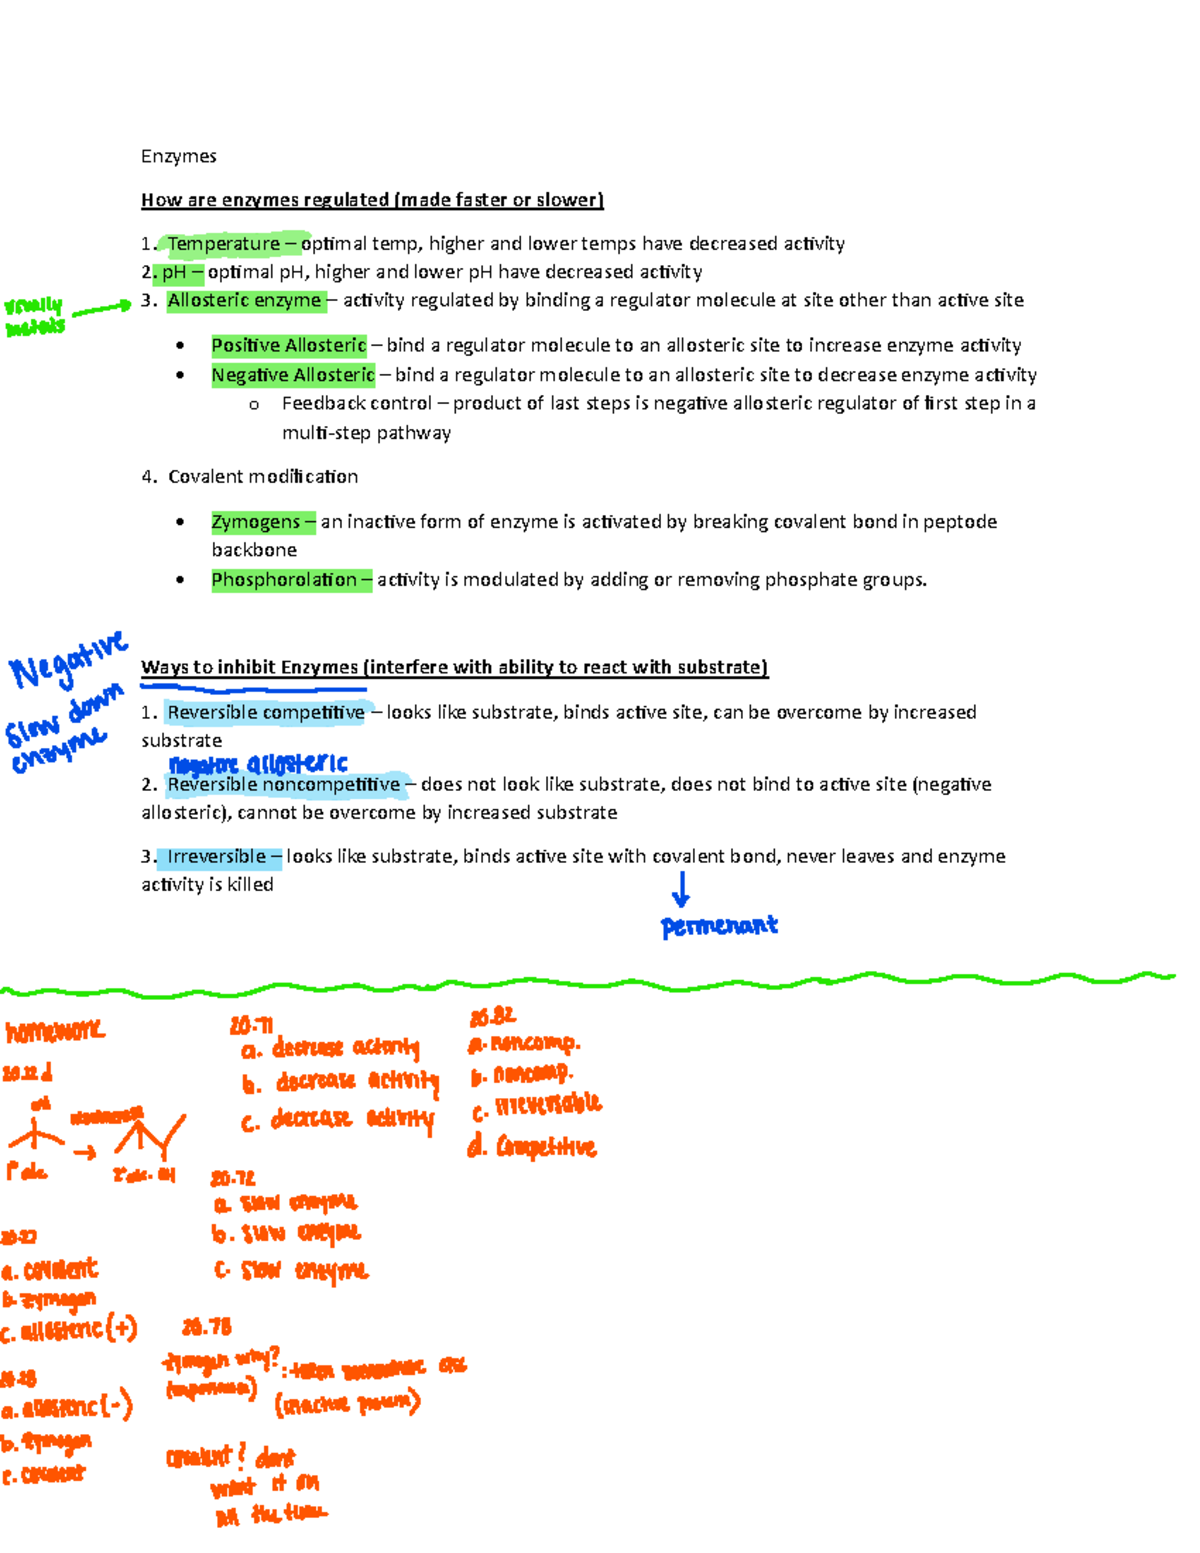 Enzymes
How are enzymes regulated (made faster or slower)
1. Temperature – optimal temp, higher and lower temps have decreased activity
2. pH – optimal pH, higher and lower pH have decreased activity
usually
3. Allosteric enzyme – activity regulated by binding a regulator molecule at site other than active site
• Positive Allosteric – bind a regulator molecule to an allosteric site to increase enzyme activity
• Negative Allosteric – bind a regulator molecule to an allosteric site to decrease enzyme activity
o Feedback control – product of last steps is negative allosteric regulator of first step in a
multi-step pathway
4. Covalent modification
• Zymogens – an inactive form of enzyme is activated by breaking covalent bond in peptode
backbone
• Phosphorolation – activity is modulated by adding or removing phosphate groups.
Negative
Slow down
enzyme
Ways to inhibit Enzymes (interfere with ability to react with substrate)
1. Reversible competitive – looks like substrate, binds active site, can be overcome by increased
substrate
negative allosteric
2. Reversible noncompetitive – does not look like substrate, does not bind to active site (negative
allosteric), cannot be overcome by increased substrate
3. Irreversible – looks like substrate, binds active site with covalent bond, never leaves and enzyme
activity is killed
permenant
homework
20.22 d
1° alc
2° alc. OH
20.27
a. covalent
b. zymogen
c. allosteric (+)
20.28
a. allosteric (-)
b. zymogen
c. covalent
20.71
a. decrease activity
b. decrease activity
c. decrease activity
20.72
a. slow enzyme
b. slow enzyme
c. slow enzyme
20.78
zymogen why?
covalent? dont
want it on
all the time
20.82
a. noncomp.
b. noncomp.
c. irreversable
d. competitive